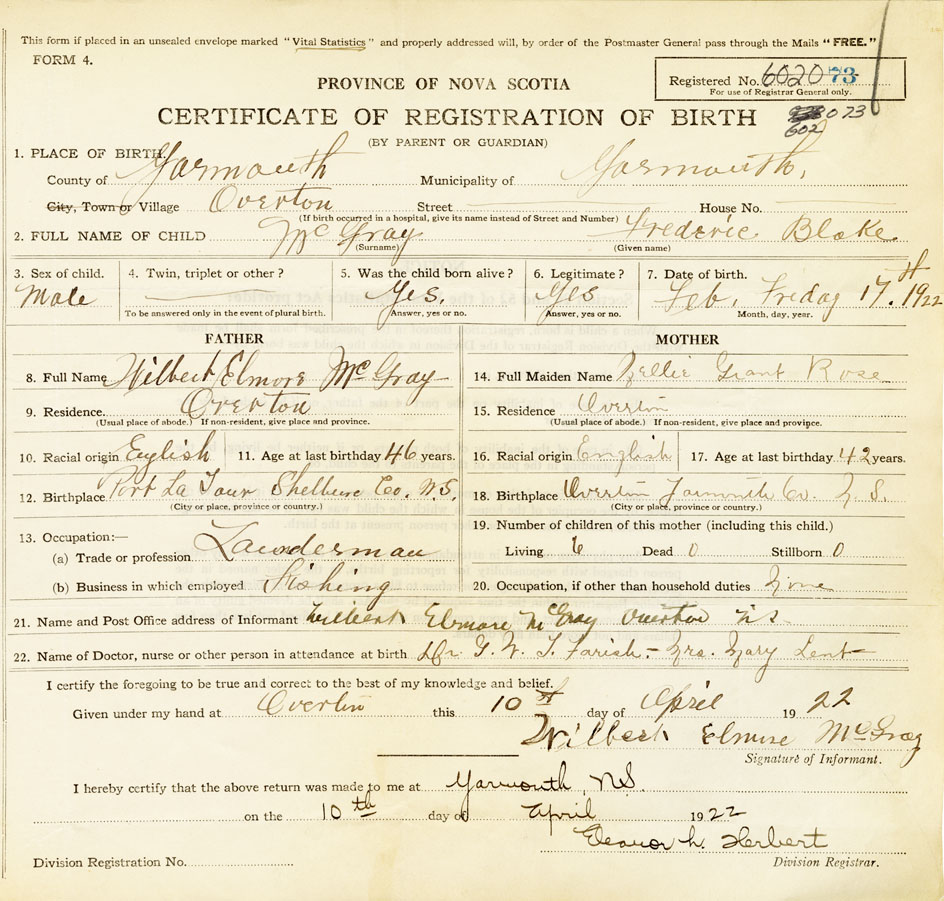 This form if placed in an unsealed envelope marked "Vital Statistics" and properly addressed will, by order of the Postmaster General pass through the Mails "FREE."
FORM 4.
Registered No. 6020 73
For use of Registrar General only.
PROVINCE OF NOVA SCOTIA
CERTIFICATE OF REGISTRATION OF BIRTH
073
602
(BY PARENT OR GUARDIAN)
1. PLACE OF BIRTH.
County of Yarmouth Municipality of Yarmouth,
City, Town or Village Overton Street House No.
(If birth occurred in a hospital, give its name instead of Street and Number)
2. FULL NAME OF CHILD McGray Frederic Blake
(Surname) (Given name)
3. Sex of child. 4. Twin, triplet or other? 5. Was the child born alive? 6. Legitimate? 7. Date of birth.
Male Yes. Yes Feb. Friday 17th 1922
To be answered only in the event of plural birth. Answer, yes or no. Answer, yes or no. Month, day, year.
FATHER MOTHER
8. Full Name Wilbert Elmore McGray 14. Full Maiden Name Nellie Grant Rose
9. Residence. Overton 15. Residence Overton
(Usual place of abode.) If non-resident, give place and province. (Usual place of abode.) If non-resident, give place and province.
10. Racial origin English 11. Age at last birthday 46 years. 16. Racial origin English 17. Age at last birthday 42 years.
12. Birthplace Port La Tour Shelburne Co. N.S. 18. Birthplace Overton Yarmouth Co. N.S.
(City or place, province or country.) (City or place, province or country.)
13. Occupation:— 19. Number of children of this mother (including this child.)
(a) Trade or profession Landerman Living 6 Dead 0 Stillborn 0
(b) Business in which employed Fishing 20. Occupation, if other than household duties None
21. Name and Post Office address of Informant Wilbert Elmore McGray Overton N.S.
22. Name of Doctor, nurse or other person in attendance at birth Dr. G. W. T. Farish - Mrs. Mary Lent
I certify the foregoing to be true and correct to the best of my knowledge and belief.
Given under my hand at Overton this 10th day of April 1922
Wilbert Elmore McGray
Signature of Informant.
I hereby certify that the above return was made to me at Yarmouth, N.S.
on the 10th day of April 1922
Eleanor L. Herbert
Division Registrar.
Division Registration No.